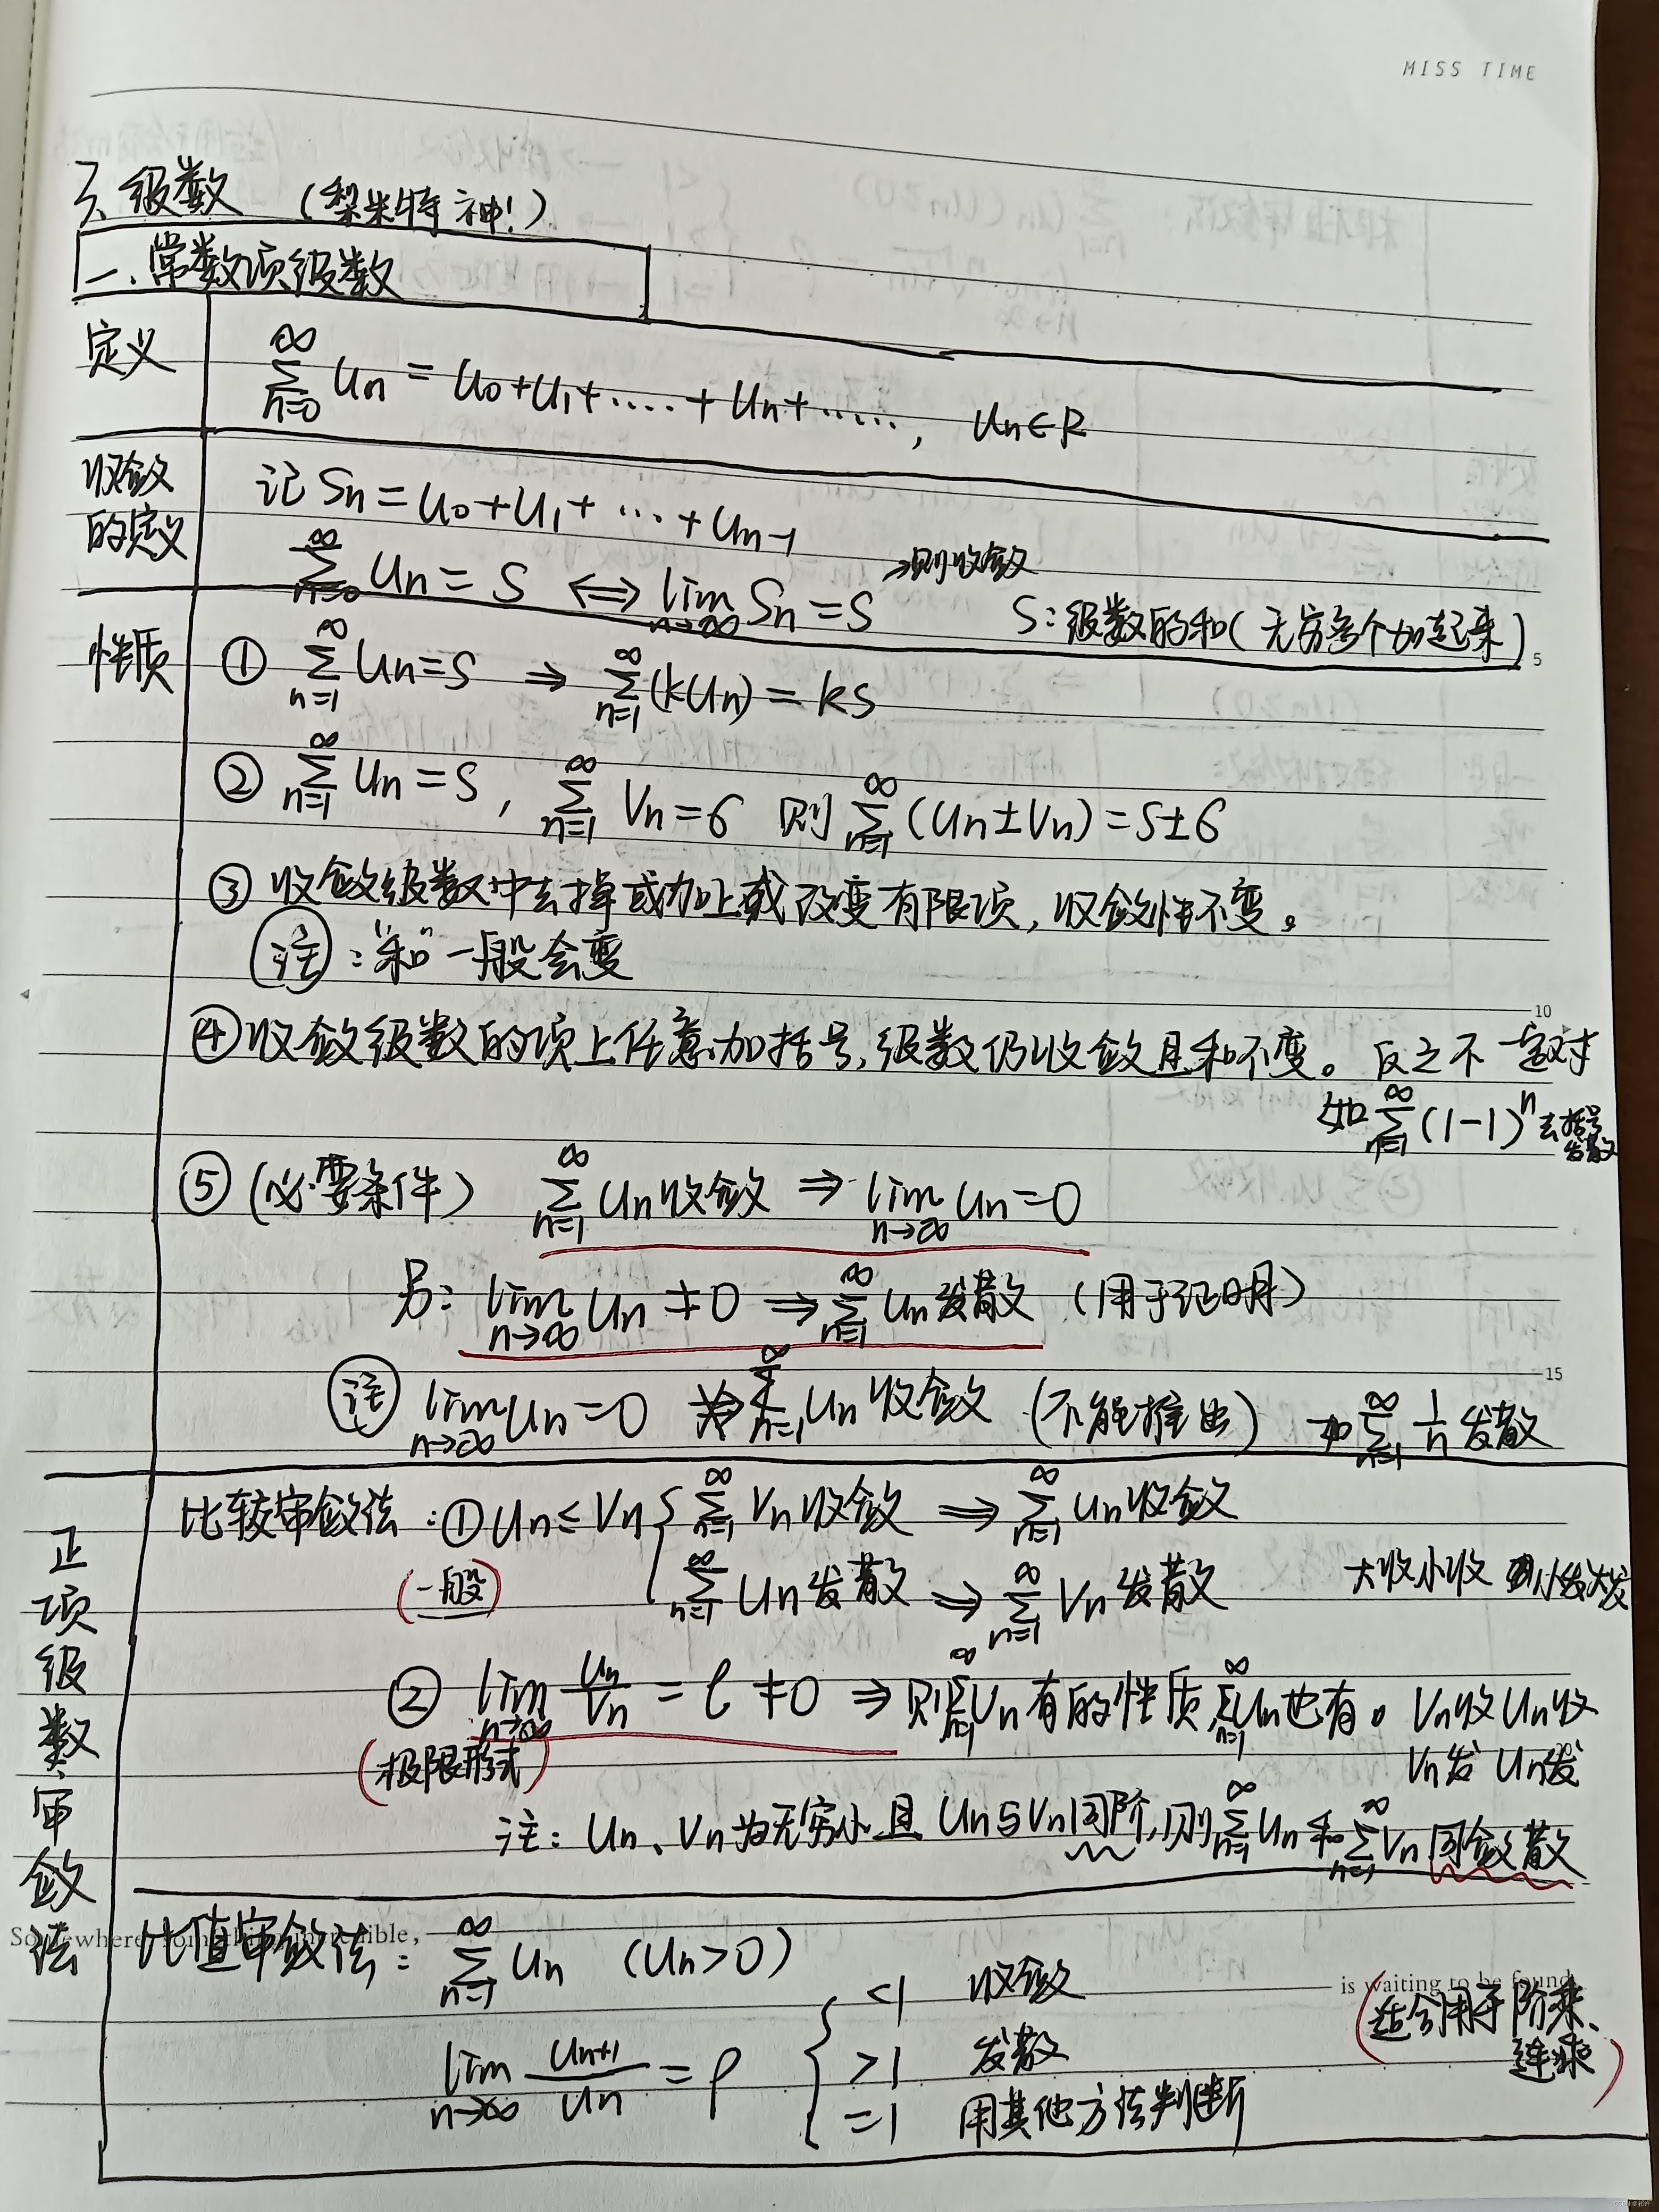 MISS TIME
3、级数 (梨米特神!)
一、常数项级数
定义
∞∑n=0 Un = U0+U1+·····+Un+·····, Un∈R
收敛的定义
记 Sn=U0+U1+···+Un-1
∞∑n=0 Un=S ⇔ lim n→∞ Sn=S →则收敛 S:级数的和(无穷多个加起来)
5
性质
① ∞∑n=1 Un=S ⇒ ∞∑n=1 (kUn)=kS
② ∞∑n=1 Un=S, ∞∑n=1 Vn=6 则 ∞∑n=1 (Un±Vn)=S±6
③ 收敛级数中去掉或加上或改变有限项,收敛性不变。
注:“和”一般会变
10
④ 收敛级数的项上任意加括号,级数仍收敛且和不变。反之不一定对
如 ∞∑n=1 (1-1)^n 去括号发散
⑤ (必要条件) ∞∑n=1 Un收敛 ⇒ lim n→∞ Un=0
另: lim n→∞ Un≠0 ⇒ ∞∑n=1 Un发散 (用于证明)
15
注 lim n→∞ Un=0 ⇏ ∞∑n=1 Un收敛 (不能推出) 如 ∞∑n=1 1/n 发散
正项级数审敛法
比较审敛法:① Un≤Vn { ∞∑n=1 Vn收敛 ⇒ ∞∑n=1 Un收敛
(一般) ∞∑n=1 Un发散 ⇒ ∞∑n=1 Vn发散 大收小收 小发大发
② lim n→∞ Un/Vn = l ≠0 ⇒ 则∞∑n=1 Vn有的性质 ∞∑n=1 Un也有。 Vn收Un收
(极限形式) Vn发 Un发
注: Un、Vn为无穷小且 Un与Vn同阶,则∞∑n=1 Un和∞∑n=1 Vn同敛散
Somewhere, something incredible,
is waiting to be found
比值审敛法: ∞∑n=1 Un (Un>0)
lim n→∞ Un+1/Un = ρ { <1 收敛
>1 发散
=1 用其他方法判断
(适合用于阶乘、
连乘)